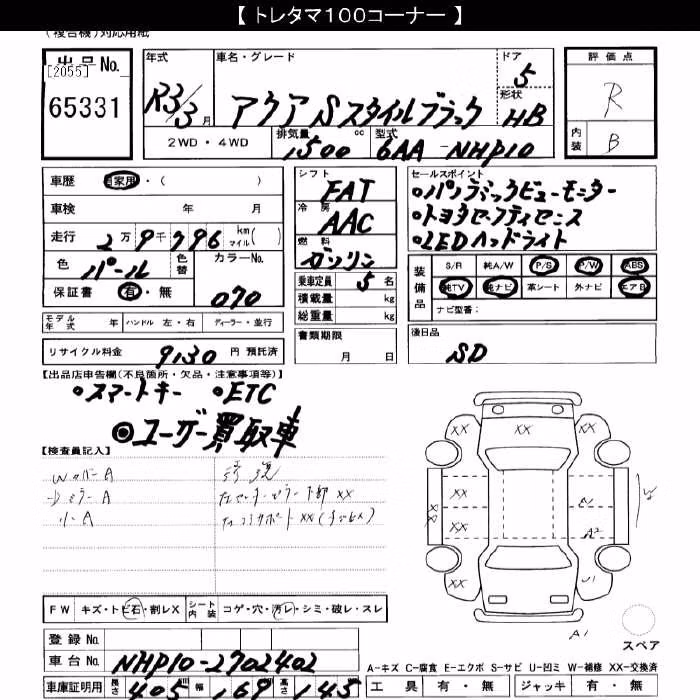 【トレタマ100コーナー】
(複合機)対応用紙
出品No.
[2055]
65331
年式
R3/3月
車名・グレード
アクア Sスタイルブラック
ドア
5
形状
HB
評価点
R
内装
B
2WD・4WD
排気量
1500cc
型式
6AA-NHP10
車歴 自家用・( )
車検 年 月
走行 2万9千796 km マイル( )
色 パール 色替
カラーNo. 070
保証書 有・無
モデル年式 年 ハンドル 左・右 ディーラー・並行
リサイクル料金 9130 円 預託済
シフト
FAT
冷房
AAC
燃料
ガソリン
乗車定員 5 名
積載量 kg
総重量 kg
書類期限
月 日
セールスポイント
・パノラミックビューモニター
・トヨタセーフティセンス
・LEDヘッドライト
装備品
S/R 純A/W P/S P/W ABS
純TV 純ナビ 革シート 外ナビ エアB
ナビ型番:
後日品
SD
【出品店申告欄(不良箇所・欠品・注意事項等)】
・スマートキー ・ETC
◎ユーザー買取車
【検査員記入】
A
A
A
XX
XX
XX XX XX
XX
XX
XX
A2
U1
A1
スペア
FW キズ・トビ石・割レX シート内装 コゲ・穴・汚レ・シミ・破レ・スレ
登録No.
車台No. NHP10-2702402
車庫証明用 長さ 405 幅 169 高さ 145
A-キズ C-腐食 E-エクボ S-サビ U-凹ミ W-補修 XX-交換済
工具 有・無 ジャッキ 有・無